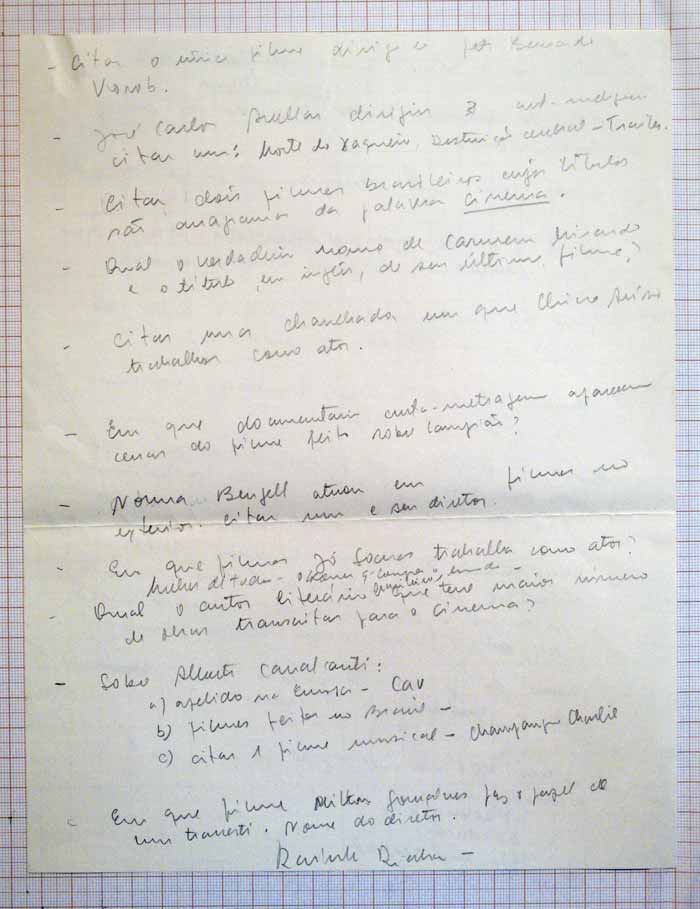 - Citar o único filme dirigido por Bernardo
Vorob.
- José Carlos dirigiu 3
citar um: Morte do Vaqueiro, Destruição cerebral - Trailer.
- Citar dois filmes brasileiros cujos títulos
são anagramas da palavra cinema.
- Qual o verdadeiro nome de Carmem Miranda
e o título, em inglês, de seu último filme?
- Citar uma chanchada em que Chico Anísio
trabalhou como ator.
- Em que documentário curta-metragem aparecem
cenas do filme feito sobre Lampião?
- Norma Bengell atuou em filmes no
exterior. Citar um e seu diretor.
- Em que filmes Jô Soares trabalha como ator?
- Qual o autor literário brasileiro, que teve maior número
de obras transcritas para o cinema?
- Sobre Alberto Cavalcanti:
a) apelido na Europa - Cav
b) filmes feitos no Brasil -
c) citar 1 filme musical - Champangne Charlie
Em que filme Milton Gonçalves faz o papel de
um travesti. Nome do diretor.